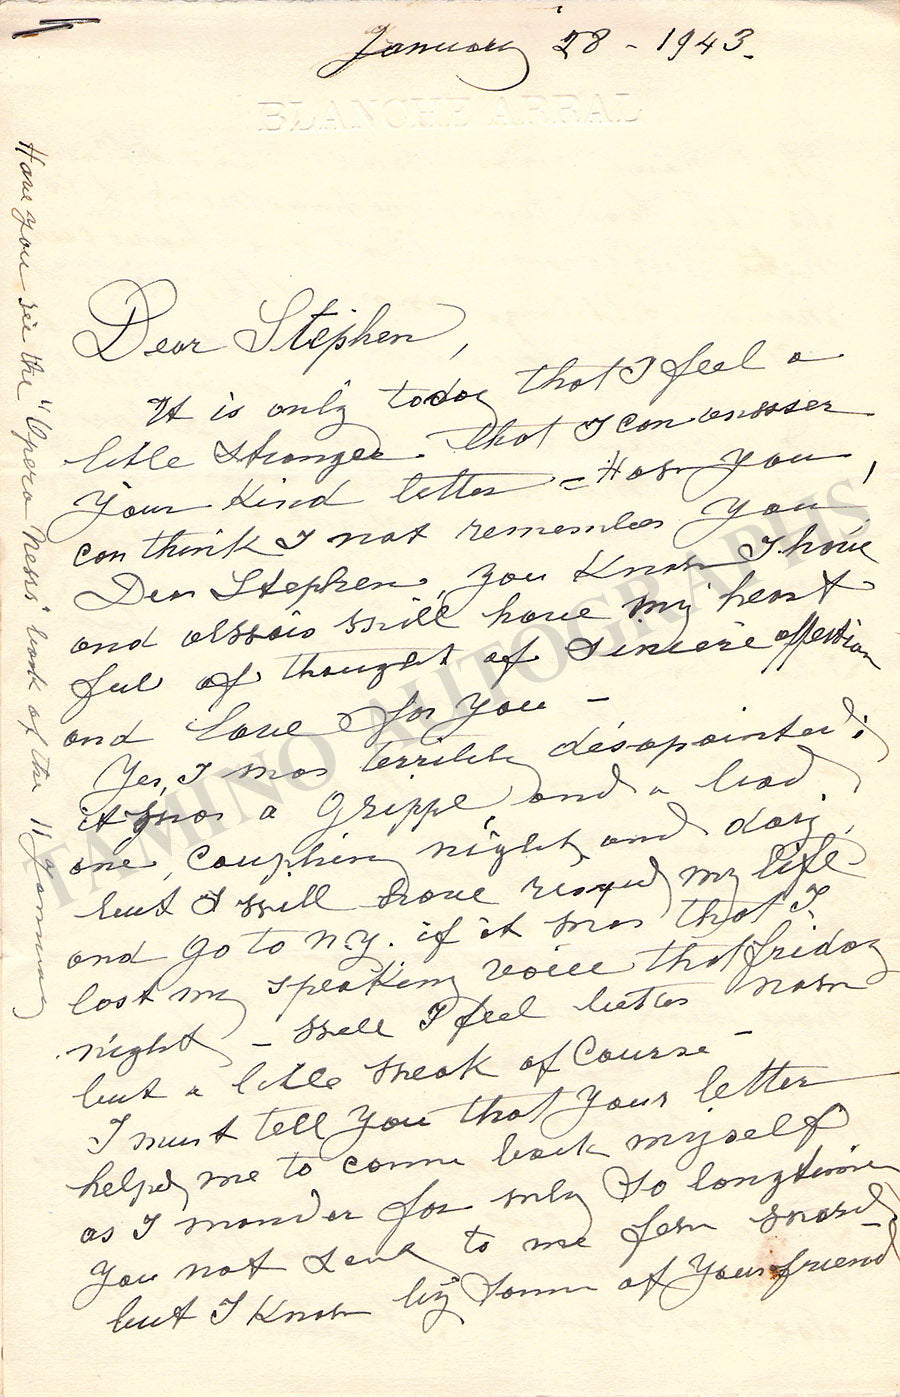 January 28 - 1943.
BLANCHE ARRAL
Dear Stephen,
It is only today that I feel a
little stronger - that I can answer
your kind letter - How you
can think I not remember you,
Dear Stephen, you know I have
and always will have my heart
ful of thought of sincère affection
and love for you -
Yes, I was terribly désapointed;
it was a Grippe and a bad
one, coughing night and day,
but I will have risqued my life
and go to N.Y. if it was that I
lost my speaking voice that friday
night - well I feel better now
but a little weak of course -
I must tell you that your letter
helped me to come back myself
as I wonder for why so longtime
you not send to me few word
but I know by some of your friend
Have you see the "Opera News" book of the 11 January
TAMINO AUTOGRAPHS